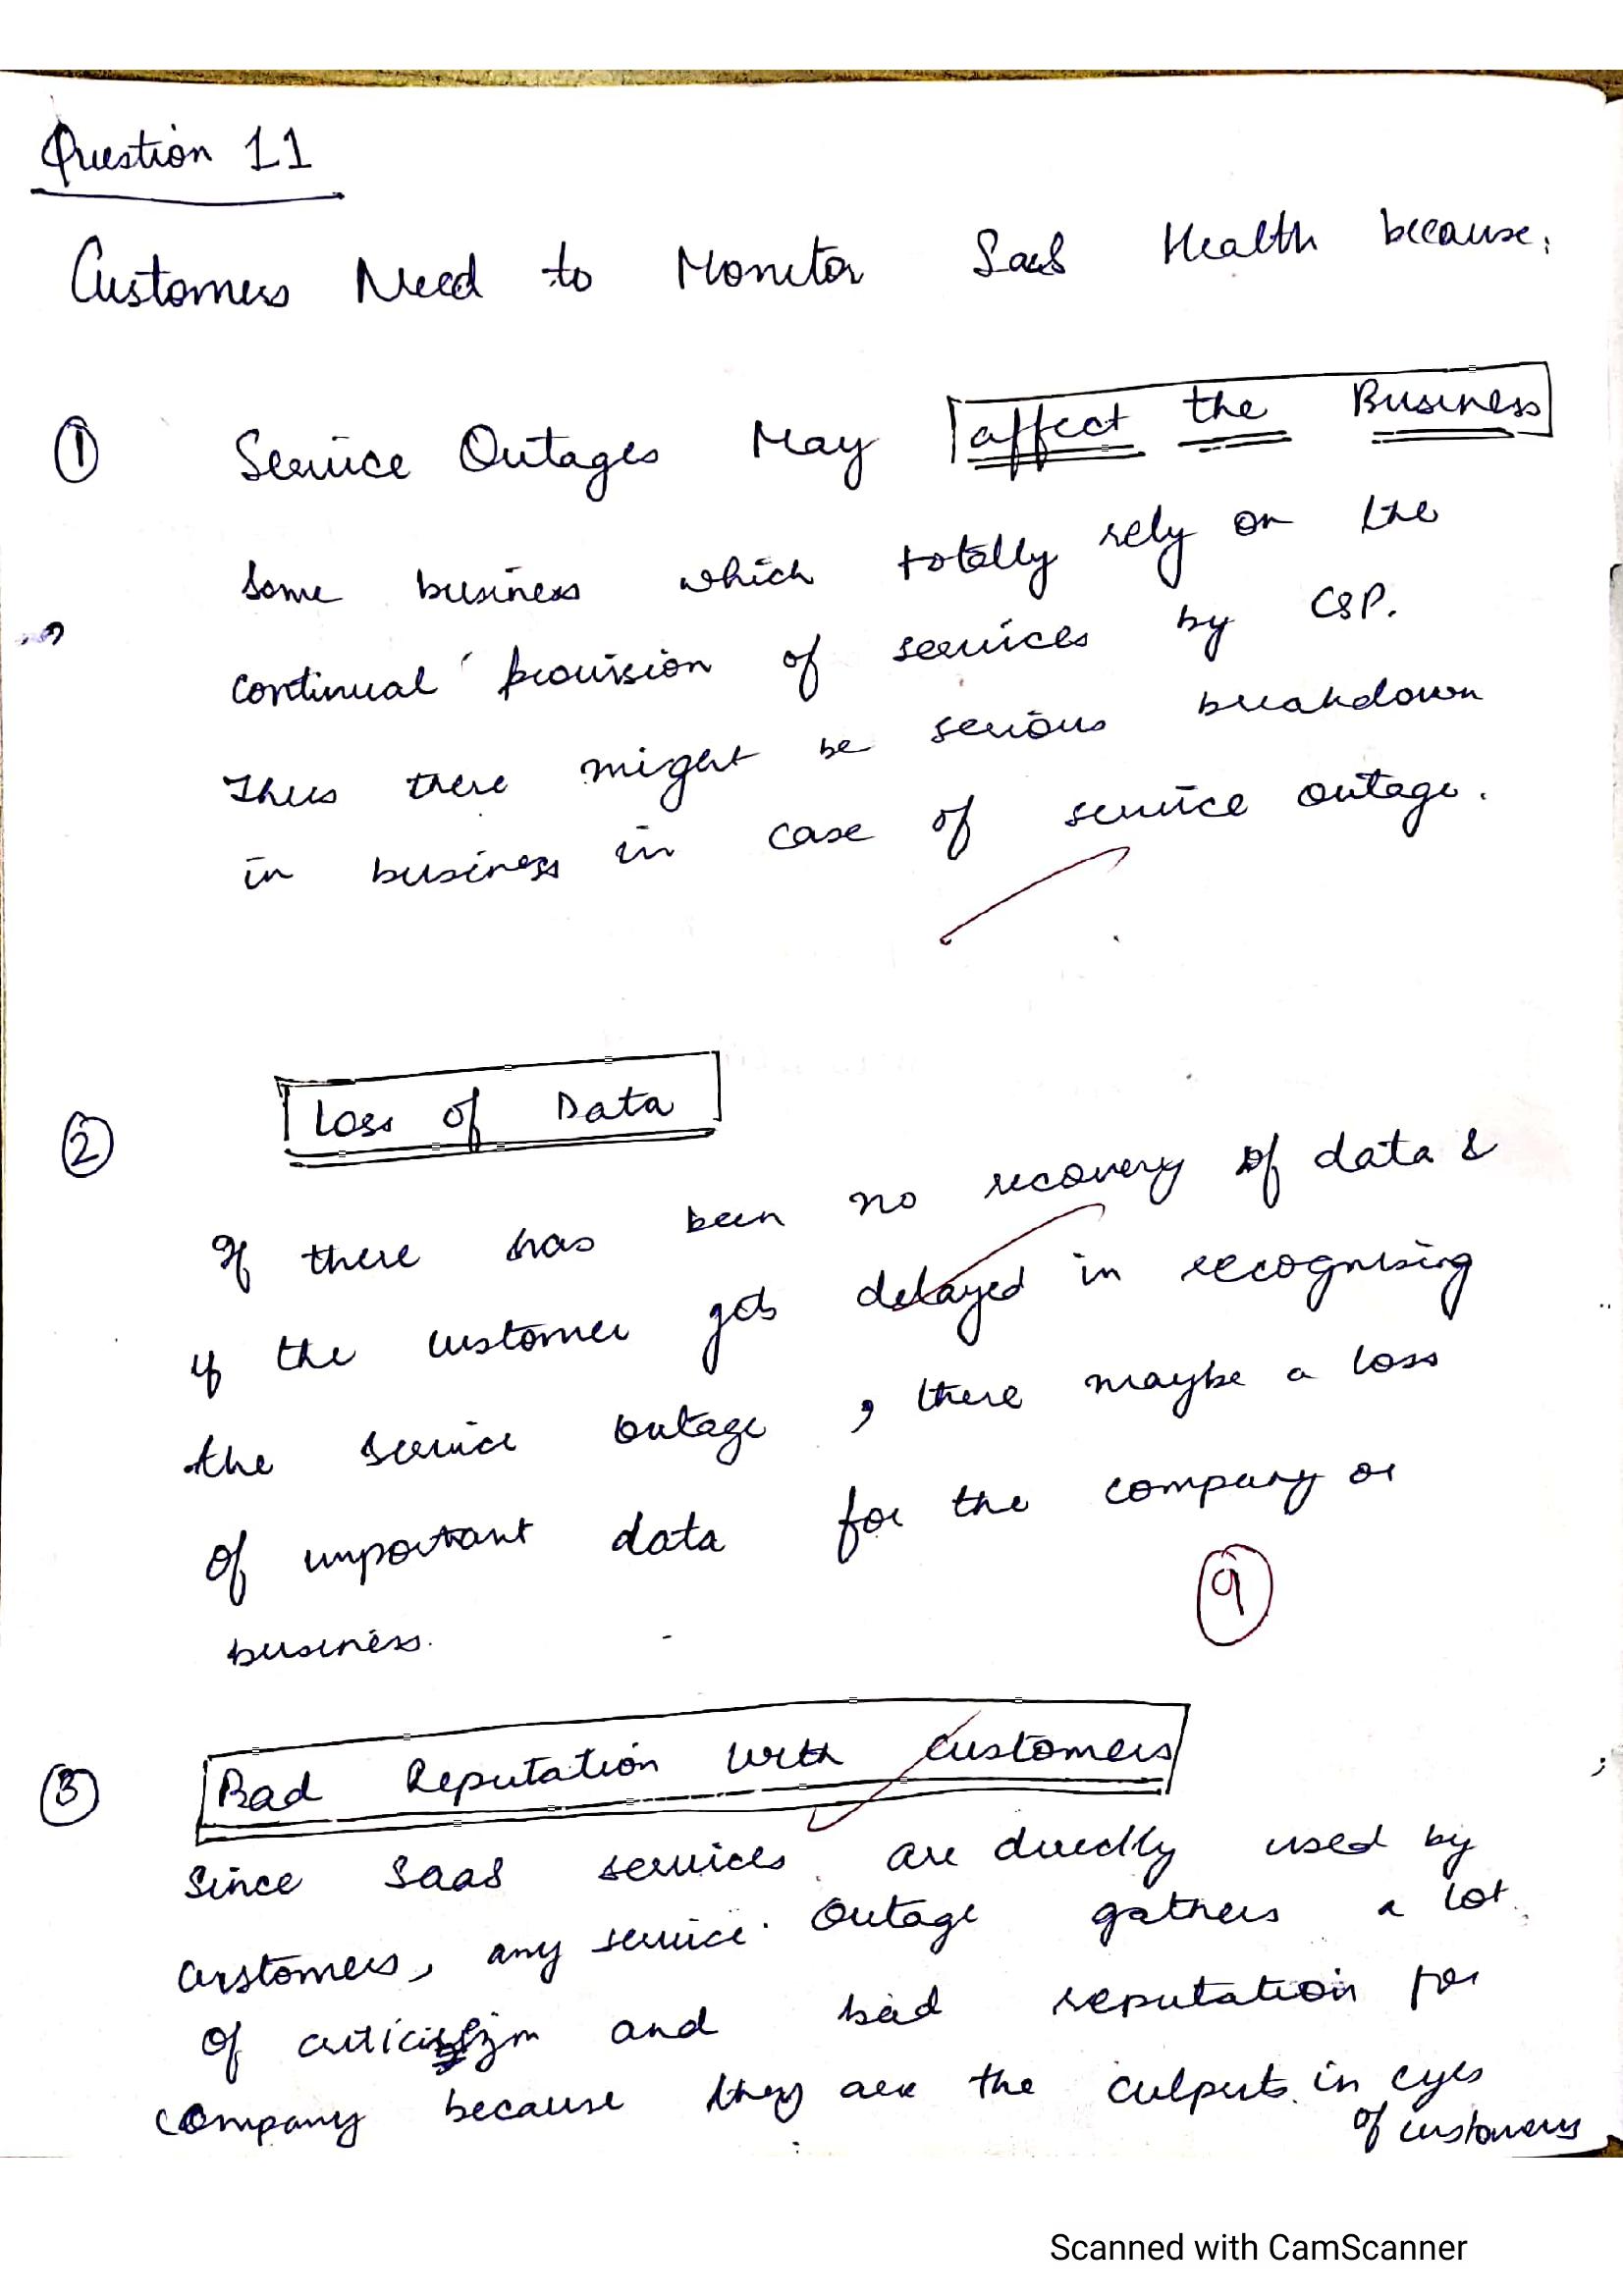 Question 11
Customers Need to Monitor SaaS Health because:
① Service Outages May affect the Business
Some business which totally rely on the
continual provision of services by CSP.
Thus there might be serious breakdown
in business in case of service outage.
② Loss of Data
If there has been no recovery of data &
if the customer gets delayed in recognising
the service outage, there maybe a loss
of important data for the company or
business.
9
③ Bad Reputation with customers
Since SaaS services are directly used by
customers, any service outage gathers a lot
of criticism and bad reputation for
company because they are the culprits in eyes
of customers
Scanned with CamScanner